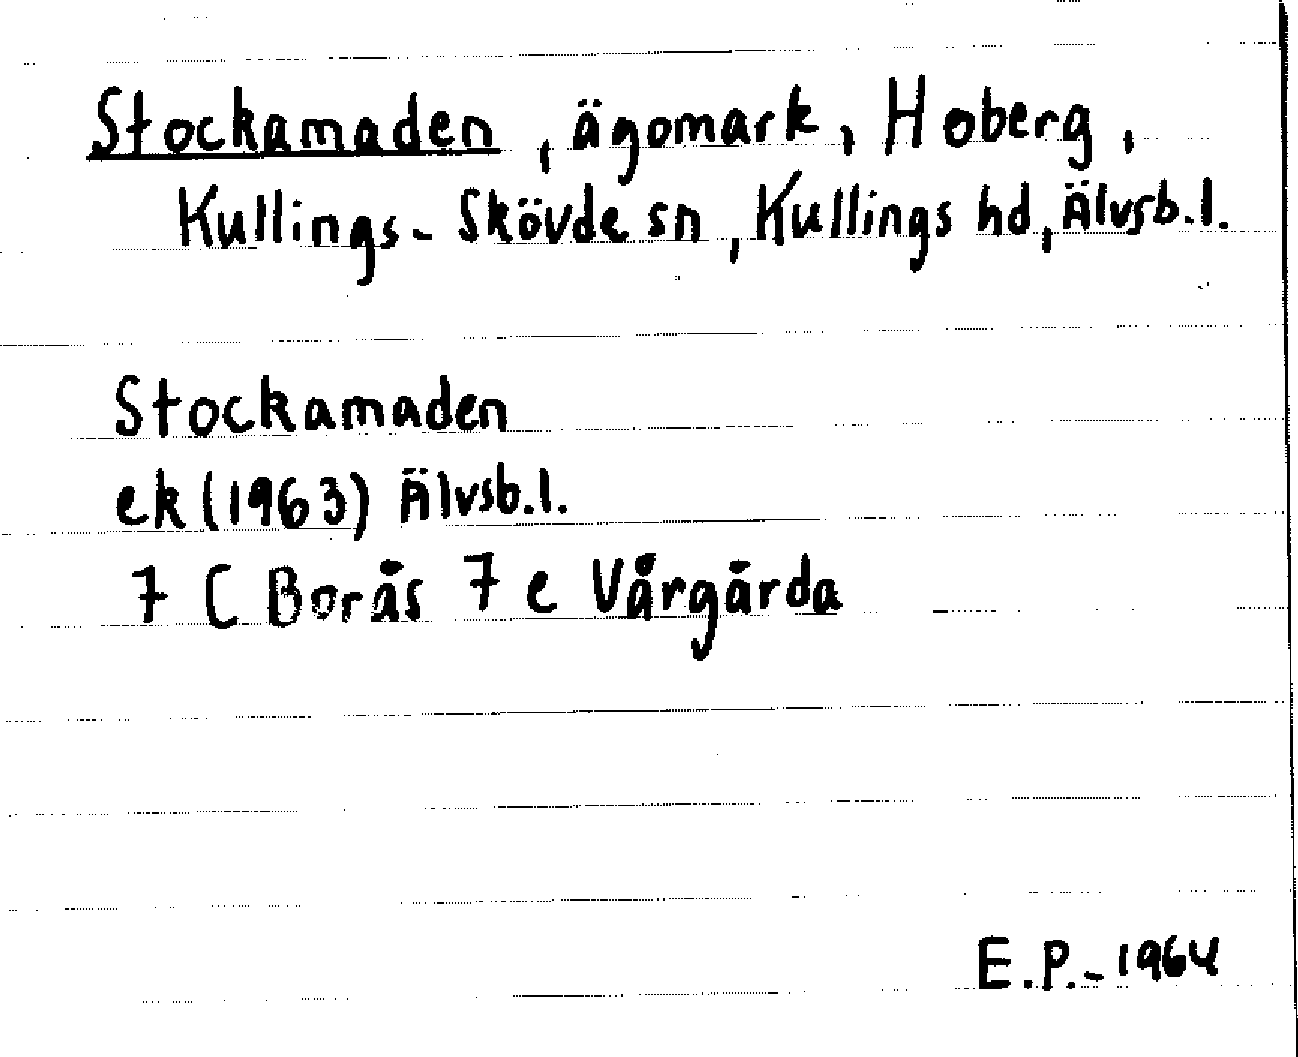 Stockamaden, ägomark, Hoberg,
Kullings-Skövde sn, Kullings hd, Älvsb.l.
Stockamaden
ek (1963) Älvsb.l.
7 C Borås 7 e Vårgårda
E.P.-1964